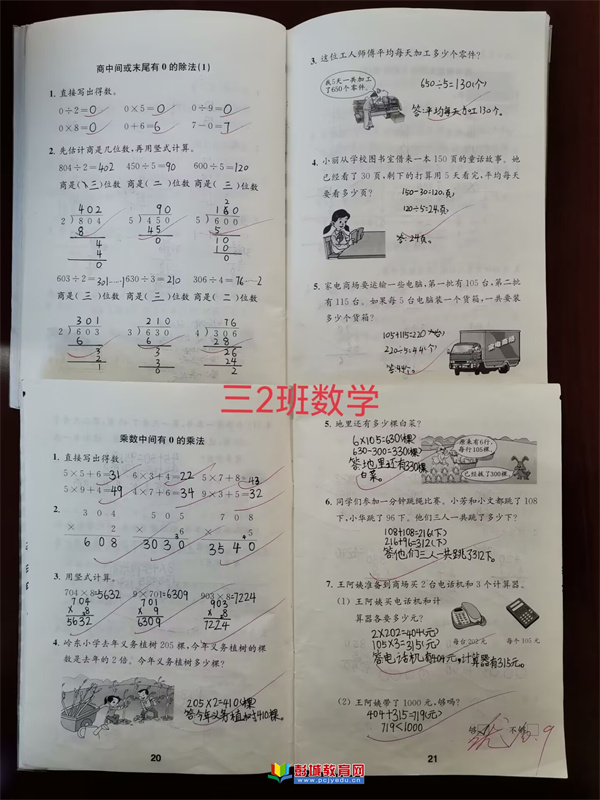 商中间或末尾有0的除法(1)
1. 直接写出得数。
0÷2=0 0×5=0 0÷9=0
0×8=0 0+6=6 7-0=7
2. 先估计商是几位数,再用竖式计算。
804÷2=402 450÷5=90 600÷5=120
商是(三)位数 商是(二)位数 商是(三)位数
402 90
2)804 5)450 5)600
8 45 5
4 0 10
4 10
0 0
603÷2=301……1 630÷3=210 306÷4=76……2
商是(三)位数 商是(三)位数 商是(二)位数
301 210 76
2)603 3)630 4)306
6 6 28
3 3 26
2 3 24
1 0 2
3. 这位工人师傅平均每天加工多少个零件?
我5天一共加工
了650个零件。
650÷5=130(个)
答:平均每天加工130个。
4. 小丽从学校图书室借来一本150页的童话故事。她
已经看了30页,剩下的打算用5天看完,平均每天
要看多少页?
150-30=120页
120÷5=24页
答:24页。
5. 家电商场要运输一些电脑,第一批有105台,第二批
有115台。如果每5台电脑装一个货箱,一共要装
多少个货箱?
105+115=220(台)
220÷5=44(个)
答44个。
三2班数学
乘数中间有0的乘法
1. 直接写出得数。
5×5+6=31 6×3+4=22 5×7+8=43
5×9+4=49 4×7+6=34 9×3+5=32
2.
304 505 708
× 2 × 6 × 5
608 3030 3540
3. 用竖式计算。
704×8=5632 701×9=6309 903×8=7224
704 701 903
× 8 × 9 × 8
5632 6309 7224
4. 岭东小学去年义务植树205棵,今年义务植树的棵
数是去年的2倍。今年义务植树多少棵?
205×2=410(棵)
答今年义务植树410棵。
20
5. 地里还有多少棵白菜?
原来有6行,
每行105棵。
已经拔了300棵。
6×105=630(棵)
630-300=330(棵)
答:地里还有330棵
白菜。
6. 同学们参加一分钟跳绳比赛。小芳和小文都跳了108
下,小华跳了96下。他们三人一共跳了多少下?
108+108=216(下)
216+96=312(下)
答他们三人一共跳了312下。
7. 王阿姨准备到商场买2台电话机和3个计算器。
(1) 王阿姨买电话机和计
算器各要多少元?
每台202元 每个105元
2×202=404(元)
105×3=315(元)
答电话机404元,计算器有315元。
(2) 王阿姨带了1000元,够吗?
404+315=719(元)
719<1000
够 不够
21
彭城教育网
www.pcjyedu.cn